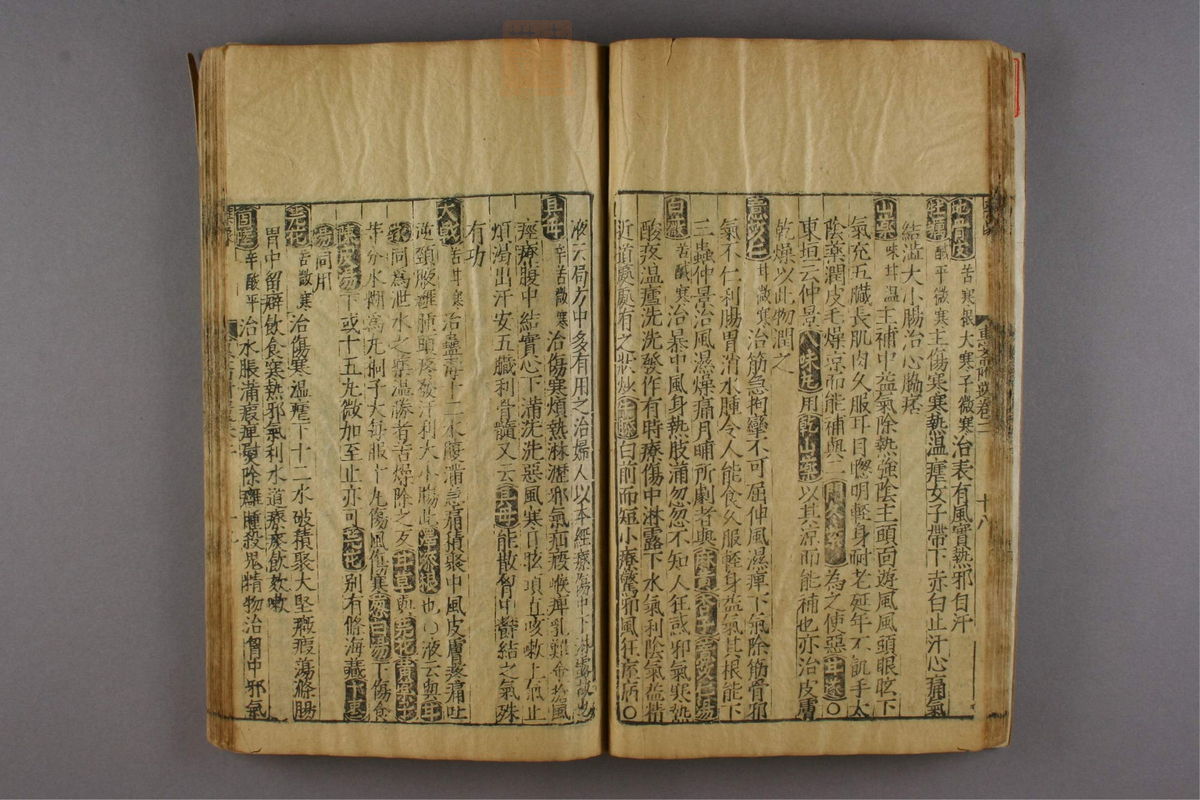 地骨皮 苦寒根大寒子微寒治表有風實熱邪自汗
牡蠣 鹹平微寒主傷寒寒熱温瘧女子帶下赤白止汗心痛氣
結澁大小腸治心脇痞
山藥 味甘温主補中益氣除熱強陰主頭面遊風風頭眼眩下
氣充五臟長肌肉久服耳目聰明輕身耐老延年不飢手太
陰藥潤皮毛燥凉而能補與二門冬為之使惡甘遂〇
東垣云仲景八味丸用乾山藥以其凉而能補也亦治皮膚
乾燥以此物潤之
薏苡仁 甘微寒治筋急拘攣不可屈伸風濕痺下氣除筋骨邪
氣不仁利腸胃消水腫令人能食久服輕身益氣其根能下
三蟲仲景治風濕燥痛月晡所劇者與麻黄杏子薏苡仁湯
白薇 苦鹹寒治暴中風身熱肢滿忽忽不知人狂惑邪氣寒熱
酸疼温瘧洗洗發作有時療傷中淋露下水氣利陰氣益精
近道處處有之狀似牛膝而短小療驚邪風狂痓病〇
液云局方中多有用之治婦人以本經療傷中下淋露故也
知母 辛苦微寒治傷寒煩熱淋瀝邪氣疝瘕喉痺乳難金瘡風
痓療腹中結實心下滿洗洗惡風寒目眩項直咳嗽上氣止
煩渴出汗安五臟利骨髓又云貝母能散胷中欝結之氣殊
有功
大戟 苦甘寒治蠱毒十二水腹滿急痛積聚中風皮膚疼痛吐
逆頸腋癰腫頭疼發汗利大小腸此澤漆根也〇液云與甘
遂同為泄水之藥濕勝者苦燥除之反甘草與芫花黄藥子
等分水糊為丸桐子大每服十丸傷風傷寒葱白湯下傷食
陳皮湯下或十五丸微加至止亦可芫花别有條海藏十棗
湯同用
芫花 苦微寒治傷寒温瘧下十二水破積聚大堅癥瘕蕩滌腸
胃中留癖飲食寒熱邪氣利水道療痰飲欬嗽
商陸 辛酸平治水脹滿瘕痺熨除癰腫殺鬼精物治胷中邪氣